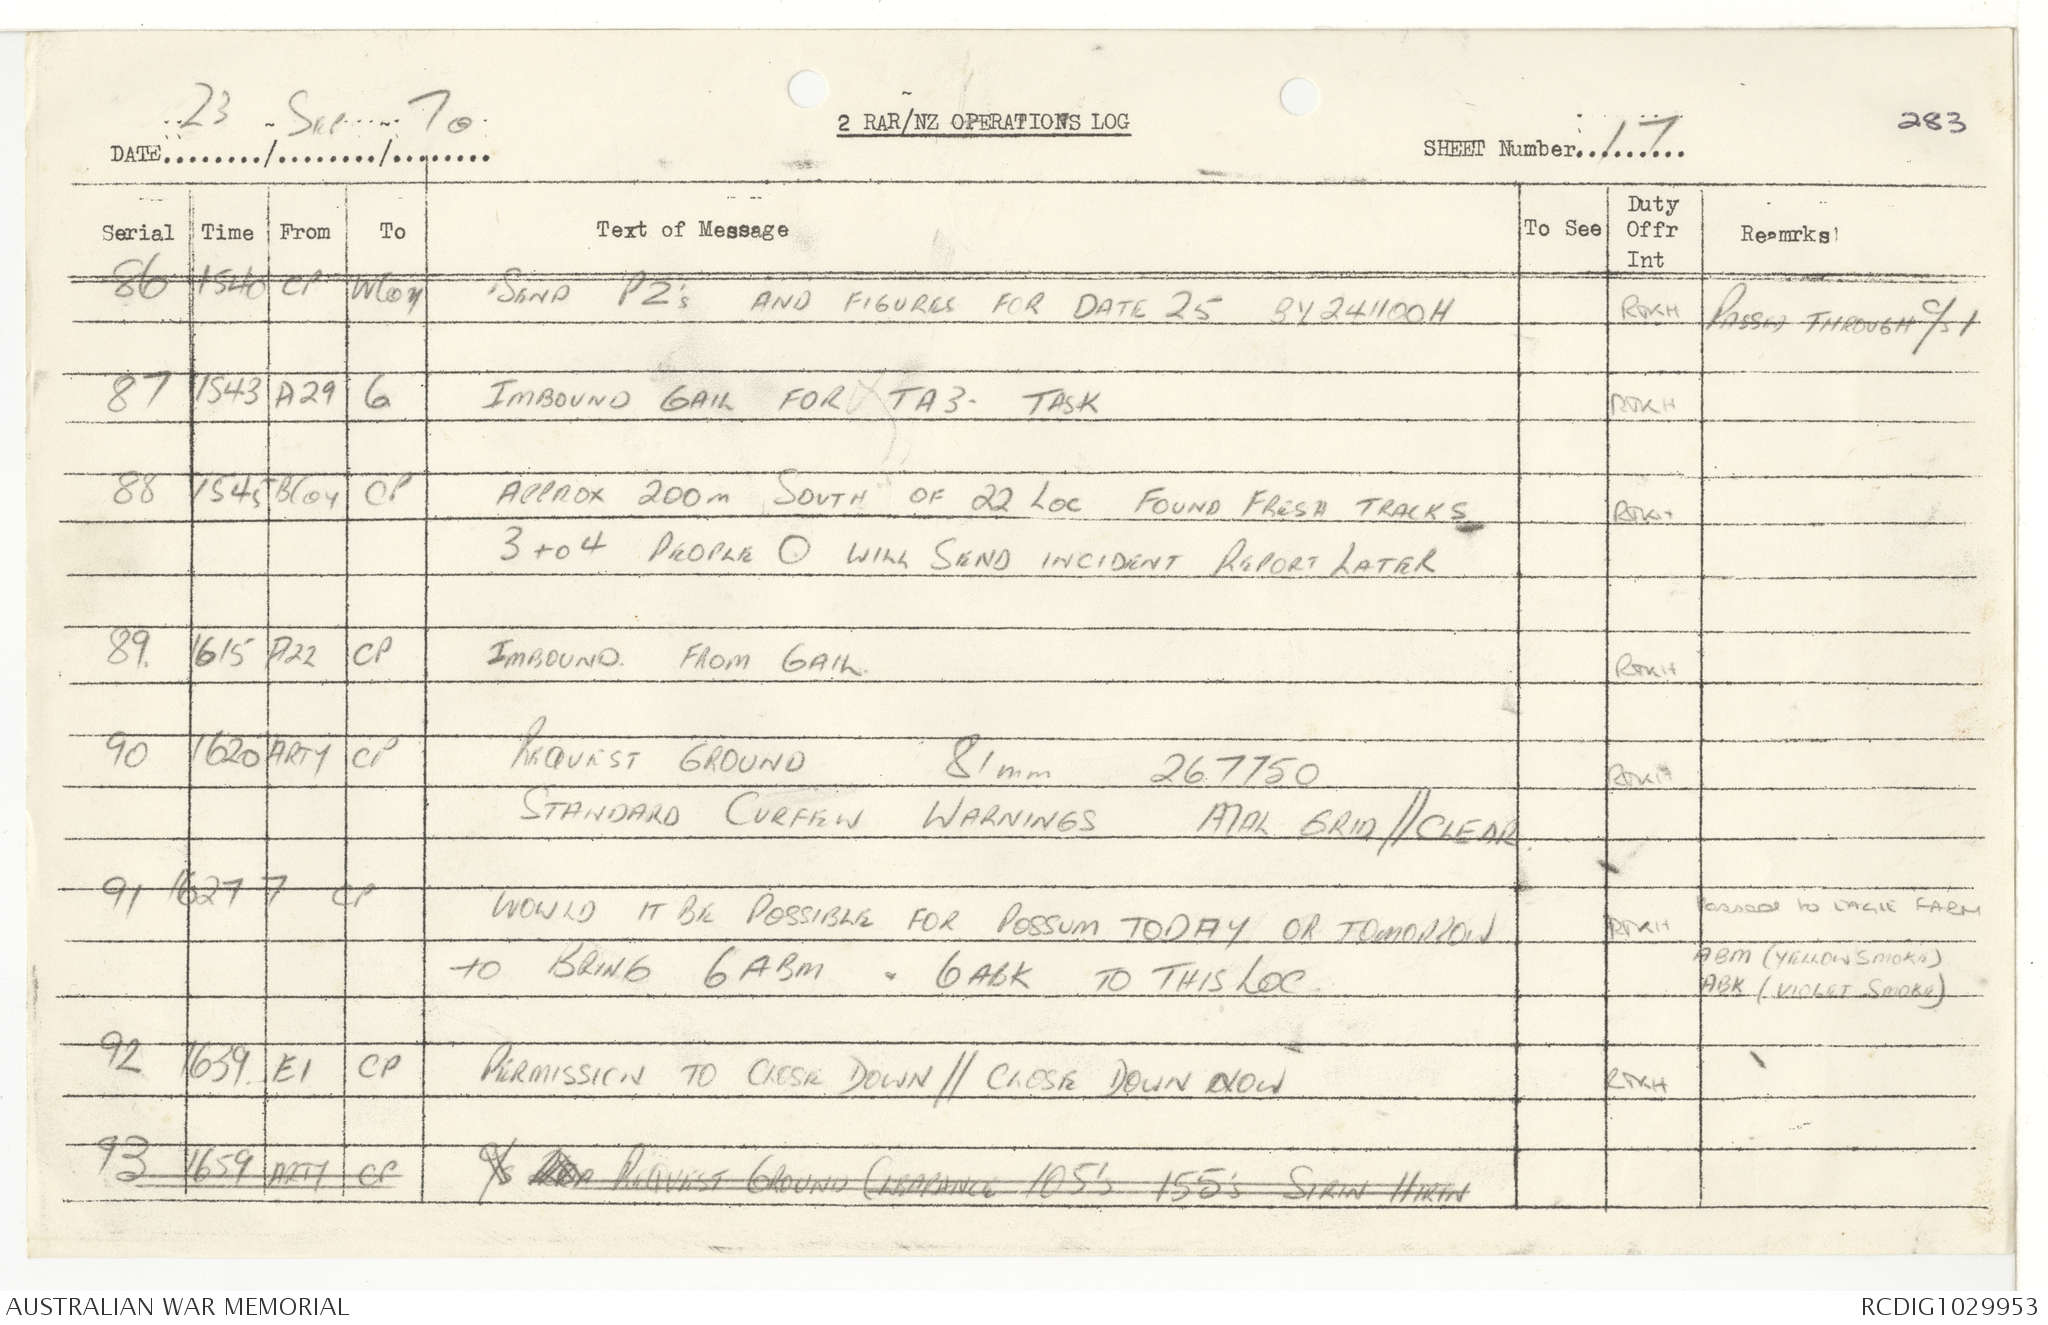 23 Sep 70
2 RAR/NZ OPERATIONS LOG
283
DATE......../......../........
SHEET Number..17.......
Serial Time From To Text of Message To See Duty Offr Int Reamrks
86 1540 CP W Coy SEND PZ's AND FIGURES FOR DATE 25 BY 241100H RJKH PASSED THROUGH C/S 1
87 1543 A29 G IMBOUND GAIL FOR TA3- TASK RJKH
88 1545 B Coy CP APPROX 200m SOUTH OF 22 LOC FOUND FRESH TRACKS RJKH
3 to 4 PEOPLE O WILL SEND INCIDENT REPORT LATER
89. 1615 A22 CP IMBOUND. FROM GAIL. RJKH
90 1620 ARTY CP REQUEST GROUND 81mm 267750 RJKH
STANDARD CURFEW WARNINGS MAL GRID//CLEAR.
91 1627 7 CP WOULD IT BE POSSIBLE FOR POSSUM TODAY OR TOMORROW RJKH Passed to EAGLE FARM
to BRING 6 ABM . 6 ABK TO THIS LOC. ABM (YELLOW SMOKE)
ABK (VIOLET SMOKE)
92 1639. E1 CP PERMISSION TO CLOSE DOWN// CLOSE DOWN NOW RJKH
93 1659 ARTY CP C/S REQUEST GROUND CLEARANCE 105's 155's
AUSTRALIAN WAR MEMORIAL
RCDIG1029953